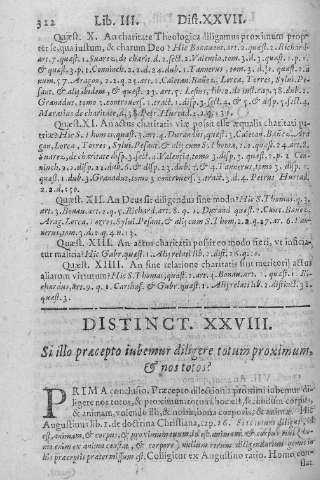 312 Lib. III. Dist. XXVII.
Quæst. X. An charitate Theologica diligamus proximum prop-
ter se, qua iustum, & charum Deo? Hic Bonauent. art. 2. quæst. 2. Richard.
art. 7. quæst. 1. Suarez, de charit. d. 1. sect. 2. Valentia, tom. 3. d. 3. quæst. 1. p.
& quæst. 3. p. 1. Conninch. 2. 2. d. 24. dub. 1. Tannerus, tom. 3. d. quæst. 2.
num. 57. Aragon, 2. 2. q. 25. art. 1. Caietan. Bañez, Lorca, Torres, Sylui. Pe-
sant. & alij ibidem, & quæst. 23. art. 5.
Granadus, tomo 3. controuers. 3. tract. 1. disp. 3. sect. 4. & 5. & disp. 5. sect. 4.
Quæst. XI. An actus charitatis viæ possit esse æqualis charitati pa-
triæ? Hic S. Thomas, quæst. 3. art. 4. Durandus, quæst. 3. Caietan. Bañez, Ara-
gon, Lorca, Torres, Sylui. Pesant. & alij cum S. Thoma, 2. 2. quæst. 24. art. 8.
Suarez, de charitate disp. 3. sect. Valentia, tomo 3. disp. 3. quæst. 2. p. 2. Con-
ninch. 2. 2. disp. 22. dub. 6. & disp. 23. dub. 7. & 4. Tannerus, tomo 3. disp.
quæst. 1. dub. 3. Granadus, tomo 3. controuers. 3. tract. 3. d. 4. Petrus Hurtad.
2. 2. d. 150.
Quæst. XII. An Deus sit diligendus sine modo? Hic S. Thomas, q. 3.
art. 3. Bonau. art. 2. q. Richard. art. 8. q. Durand. quæst. Caiet. Bañez,
Arag. Lorca, Torres, Sylui. Pesant. & alij cum S. Thom. 2. 2. q. 27. ar. 6. Tan-
nerus, tom. 3. d. 2. q. 4. n. 13.
Quæst. XIII. An actus charitatis possit eo modo fieri, vt inficia-
tur malitia? Hic Gabr. quæst. 1.
Quæst. XIIII. An sine relatione charitatis sint meritorij actus
aliarum virtutum? Hic S. Thomas, quæst. art. Bonau. art. quæst. Ri-
chardus, art. 9. q. 1. Carthus. & Gabr. quæst. 1. lib. 2. distinct. 32.
quæst. 3.
DISTINCT. XXVIII.
Si illo præcepto iubemur diligere totum proximum,
& nos totos?
PRIMA conclusio. Præcepto dilectionis proximi iubemur di-
ligere nos totos, & proximum totum, hoc est, secundum corpus,
& animam, volendo illi, & nobis bona corporis, & animæ. Hic
Augustinus lib. 1. de doctrina Christiana, cap. 26.
est, animam, & corpus, & proximum totum
nim enim ex anima constat, & corpore)
his præceptis prætermissum est. Colligitur ex Augustino ratio. Homo con-
stat